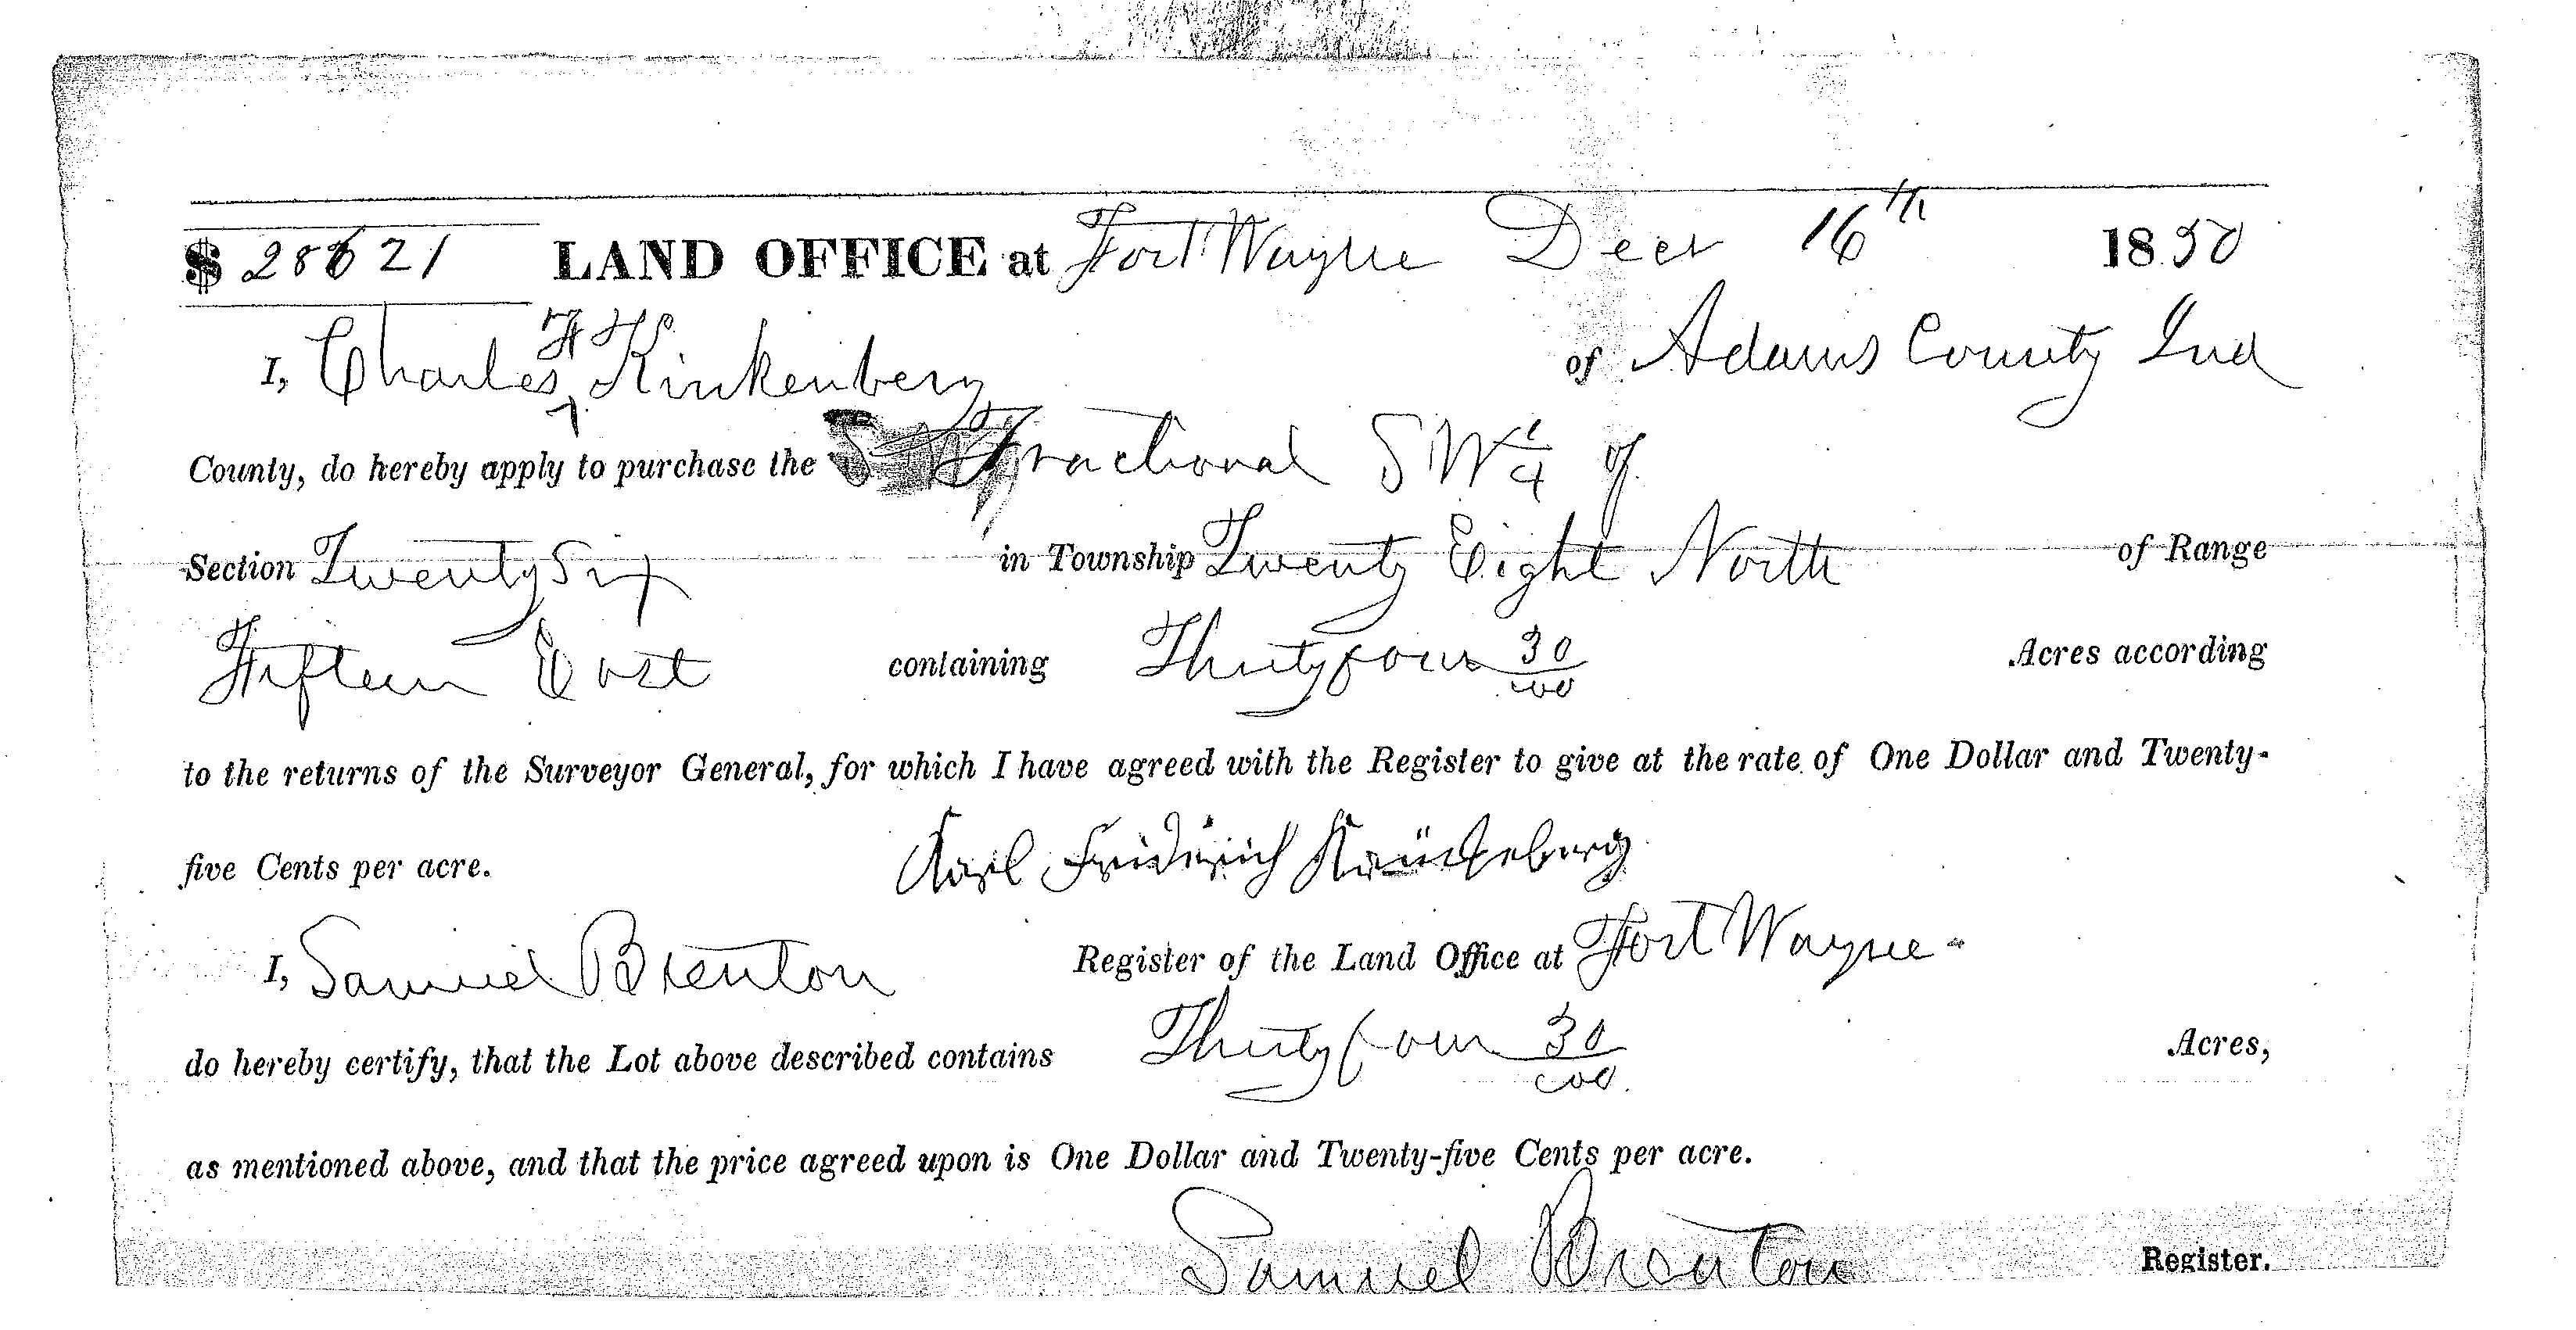 $ 28621 LAND OFFICE at Fort Wayne Decr 16th 1850
I, Charles F Kinkenberg of Adams County Ind
County, do hereby apply to purchase the Fractional SW 1/4 of
Section Twenty Six in Township Twenty Eight North of Range
Fifteen East containing Thirty four 30/100 Acres according
to the returns of the Surveyor General, for which I have agreed with the Register to give at the rate of One Dollar and Twenty-
five Cents per acre. Karl Fridrich Krückeberg
I, Samuel Brenton Register of the Land Office at Fort Wayne -
do hereby certify, that the Lot above described contains Thirty four 30/100 Acres,
as mentioned above, and that the price agreed upon is One Dollar and Twenty-five Cents per acre.
Samuel Brenton Register.